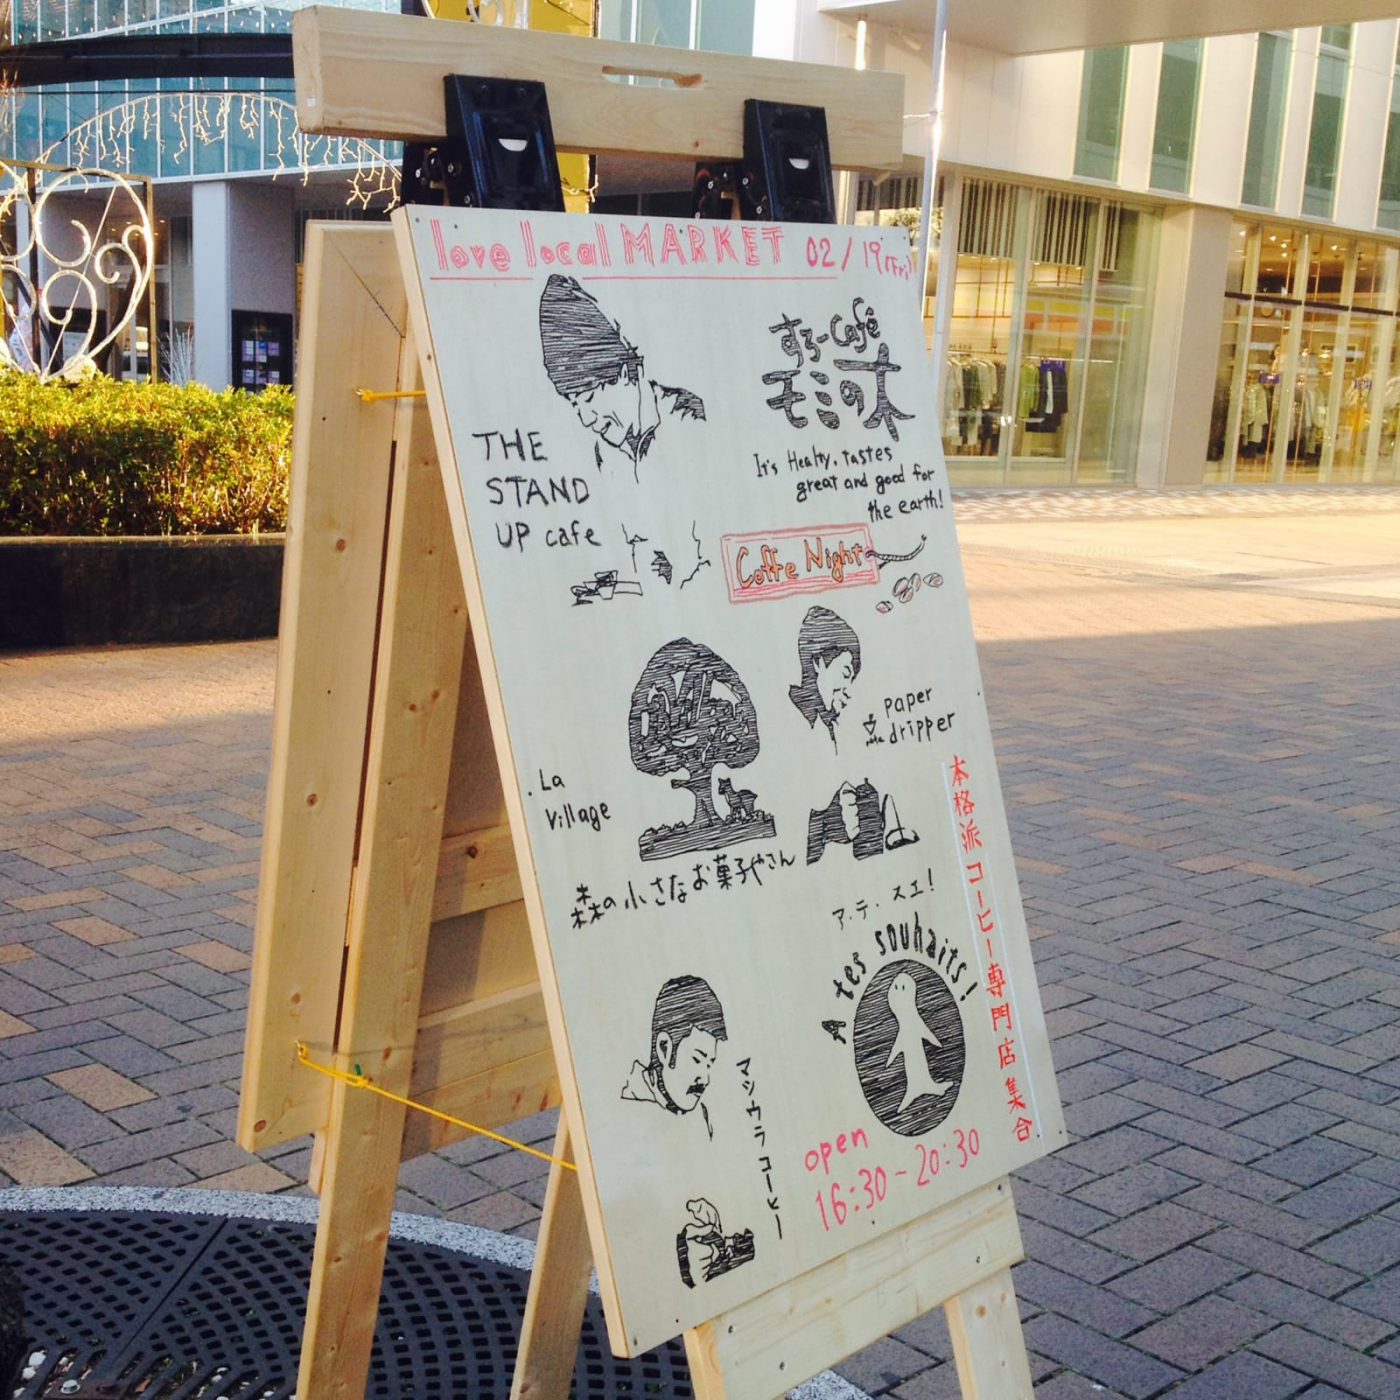 love local MARKET 02/19(Fri)
すろーcafé
モミの木
It's Healty, tastes
great and good for
the earth!
THE
STAND
UP cafe
Coffe Night
paper
dripper
La
Village
森の小さなお菓子やさん
本格派コーヒー専門店集合
ア.テ.スエ!
A tes souhaits!
マツウラコーヒー
open
16:30-20:30